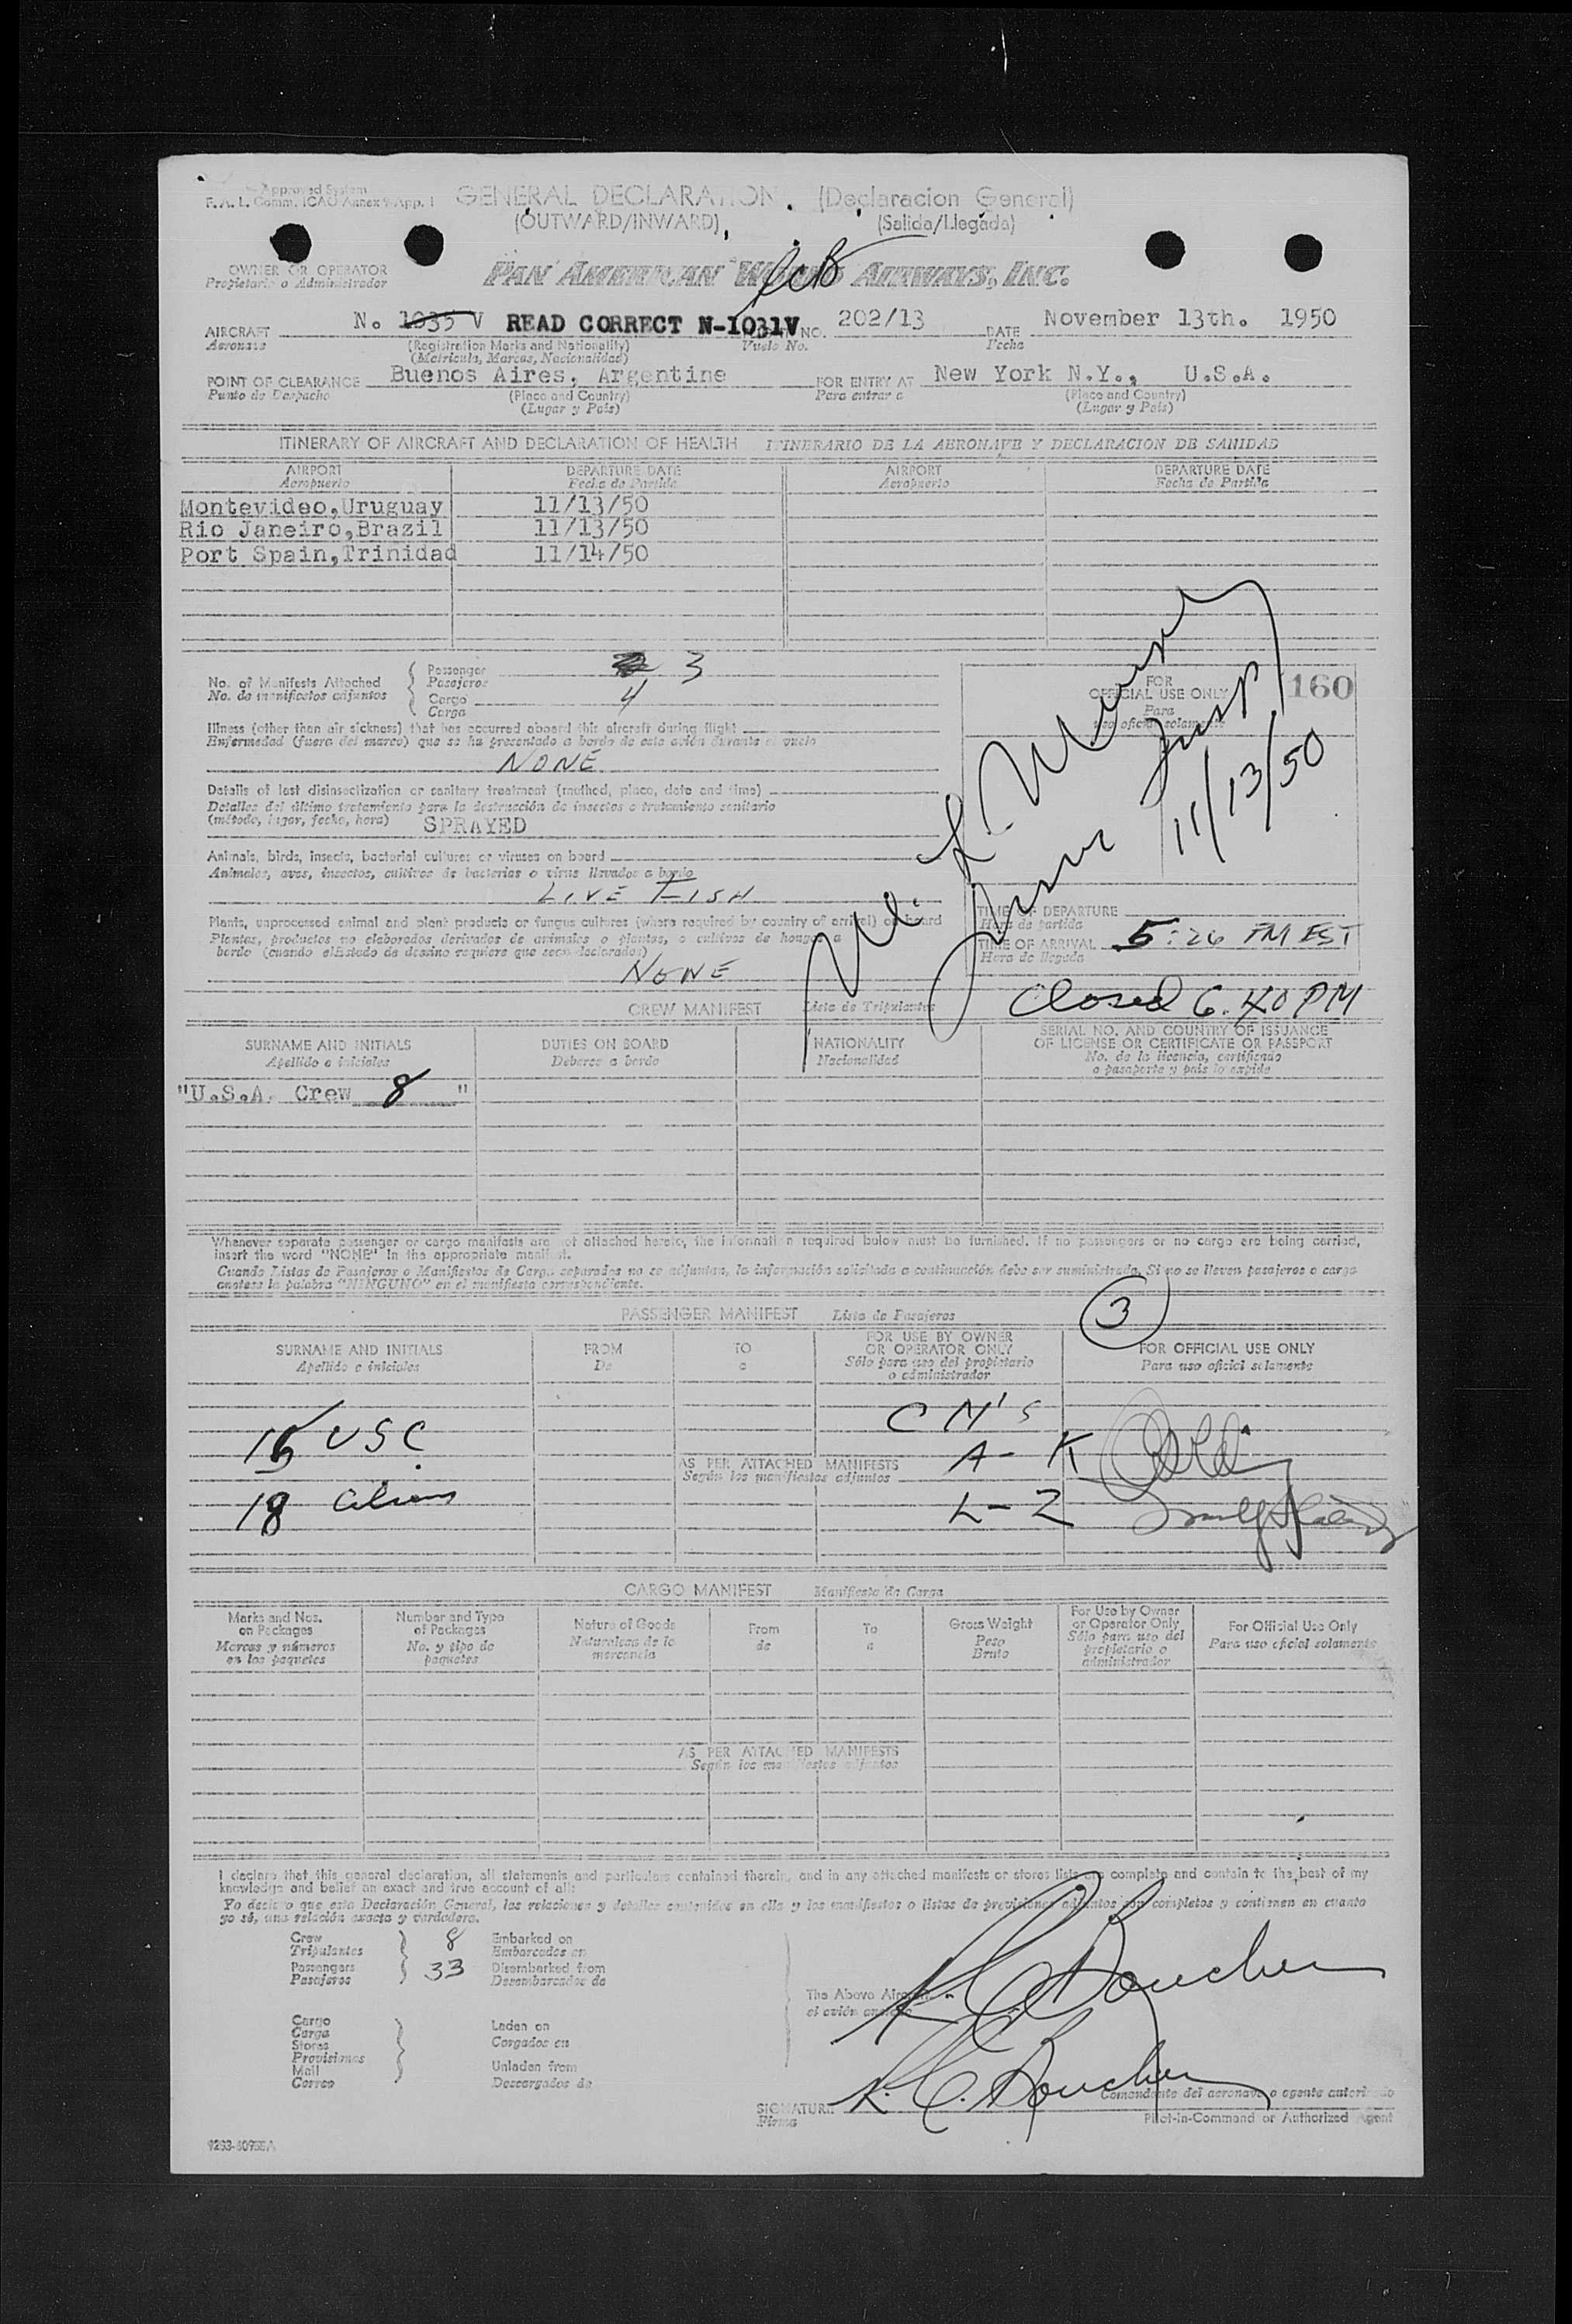 Approved System
F. A. L. Comm. ICAO Annex 9 App. 1
GENERAL DECLARATION (Declaracion General)
(OUTWARD/INWARD) (Salida/Llegada)
OWNER OR OPERATOR
Propietario o Administrador
PAN AMERICAN WORLD AIRWAYS, INC.
AIRCRAFT N. 1035 V READ CORRECT N-1031V NO. 202/13 DATE November 13th. 1950
Aeronave (Registration Marks and Nationality) Vuelo No. Fecha
(Matricula, Marcas, Nacionalidad)
POINT OF CLEARANCE Buenos Aires, Argentine FOR ENTRY AT New York N.Y., U.S.A.
Punto de Despacho (Place and Country) Para entrar a (Place and Country)
(Lugar y Pais) (Lugar y Pais)
ITINERARY OF AIRCRAFT AND DECLARATION OF HEALTH ITINERARIO DE LA AERONAVE Y DECLARACION DE SANIDAD
AIRPORT DEPARTURE DATE AIRPORT DEPARTURE DATE
Aeropuerto Fecha de Partida Aeropuerto Fecha de Partida
Montevideo,Uruguay 11/13/50
Rio Janeiro,Brazil 11/13/50
Port Spain,Trinidad 11/14/50
No. of Manifests Attached
No. de manifiestos adjuntos
Passenger 3
Pasajeros
Cargo 4
Carga
FOR
OFFICIAL USE ONLY
Para
uso oficial solamente
160
11/13/50
Illness (other than air sickness) that has occurred aboard this aircraft during flight
Enfermedad (fuera del mareo) que se ha presentado a bordo de este avión durante el vuelo
NONE
Details of last disinsectization or sanitary treatment (method, place, date and time)
Detalles del último tratamiento para la destrucción de insectos o tratamiento sanitario
(método, lugar, fecha, hora) SPRAYED
Animals, birds, insects, bacterial cultures or viruses on board
Animales, aves, insectos, cultivos de bacterias o virus llevados a bordo
LIVE FISH
Plants, unprocessed animal and plant products or fungus cultures (where required by country of arrival) on board
Plantas, productos no elaborados derivados de animales o plantas, o cultivos de hongos a
bordo (cuando elEstado de destino requiere que sean declarados)
NONE
TIME OF DEPARTURE
Hora de partida
TIME OF ARRIVAL 5:26 PM EST
Hora de llegada
Closed 6.40 PM
CREW MANIFEST Lista de Tripulantes
SURNAME AND INITIALS DUTIES ON BOARD NATIONALITY SERIAL NO. AND COUNTRY OF ISSUANCE
OF LICENSE OR CERTIFICATE OR PASSPORT
Apellido e iniciales Deberes a bordo Nacionalidad No. de la licencia, certificado
o pasaporte y pais lo expide
"U.S.A. Crew 8 "
Whenever separate passenger or cargo manifests are not attached hereto, the information required below must be furnished. If no passengers or no cargo are being carried,
insert the word "NONE" in the appropriate manifest.
Cuando Listas de Pasajeros o Manifiestos de Carga separados no se adjuntan, la información solicitada a continuación debe ser suministrada. Si no se lleven pasajeros o carga
anotese la palabra "NINGUNO" en el manifiesto correspondiente.
PASSENGER MANIFEST Lista de Pasajeros
3
SURNAME AND INITIALS FROM TO FOR USE BY OWNER
OR OPERATOR ONLY FOR OFFICIAL USE ONLY
Apellido e iniciales De a Sólo para uso del propietario
o administrador Para uso oficial solamente
CM's
USC
A - K
AS PER ATTACHED MANIFESTS
Según los manifiestos adjuntos
18 aliens
L - Z
CARGO MANIFEST Manifiesto de Carga
Marks and Nos.
on Packages
Marcas y números
en los paquetes
Number and Type
of Packages
No. y tipo de
paquetes
Nature of Goods
Naturaleza de la
mercancia
From
de
To
a
Gross Weight
Peso
Bruto
For Use by Owner
or Operator Only
Sólo para uso del
propietario o
administrador
For Official Use Only
Para uso oficial solamente
AS PER ATTACHED MANIFESTS
Según los manifiestos adjuntos
I declare that this general declaration, all statements and particulars contained therein, and in any attached manifests or stores lists are complete and contain to the best of my
knowledge and belief an exact and true account of all:
Yo declaro que esta Declaración General, las relaciones y detalles contenidos en ella y los manifiestos o listas de previsiones adjuntos son completos y contienen en cuanto
yo sé, una relación exacta y verdadera.
Crew 8 Embarked on
Tripulantes Embarcados en
Passengers 33 Disembarked from
Pasajeros Desembarcados de
The Above Aircraft
el avión
Cargo
Carga
Stores
Provisiones
Mail
Correo
Laden on
Cargados en
Unladen from
Descargados de
K. C. Boucher
SIGNATURE K. C. Boucher
Firma
Comandante del aeronave o agente autorizado
Pilot-in-Command or Authorized Agent